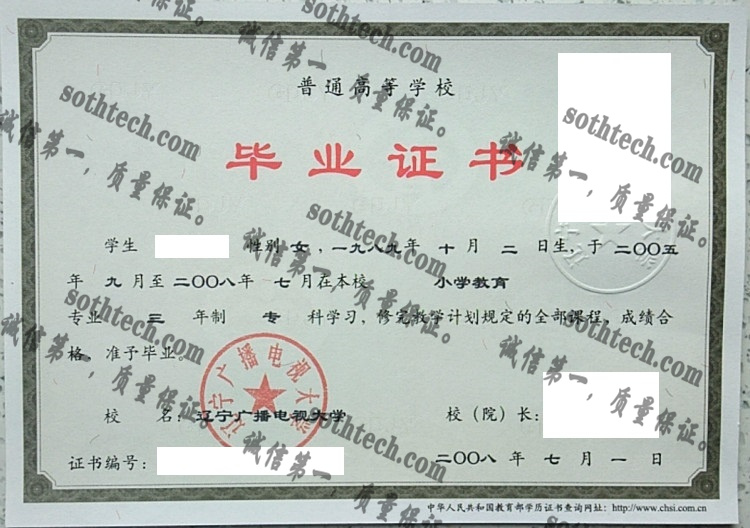 普通高等学校
毕业证书
学生 性别 女，一九八九年 十 月 二 日生，于 二〇〇五
年 九 月至 二〇〇八年 七 月在本校 小学教育
专业 三 年制 专 科学习，修完教学计划规定的全部课程，成绩合
格，准予毕业。
校 名：辽宁广播电视大学
校（院）长：
证书编号：
二〇〇八 年 七 月 一 日
中华人民共和国教育部学历证书查询网址：http://www.chsi.com.cn
辽宁广播电视大学
sothtech.com
诚信第一，质量保证。
sothtech.com
诚信第一，质量保证。
sothtech.com
诚信第一，质量保证。
sothtech.com
诚信第一，质量保证。
sothtech.com
诚信第一，质量保证。
sothtech.com
诚信第一，质量保证。
sothtech.com
诚信第一，质量保证。